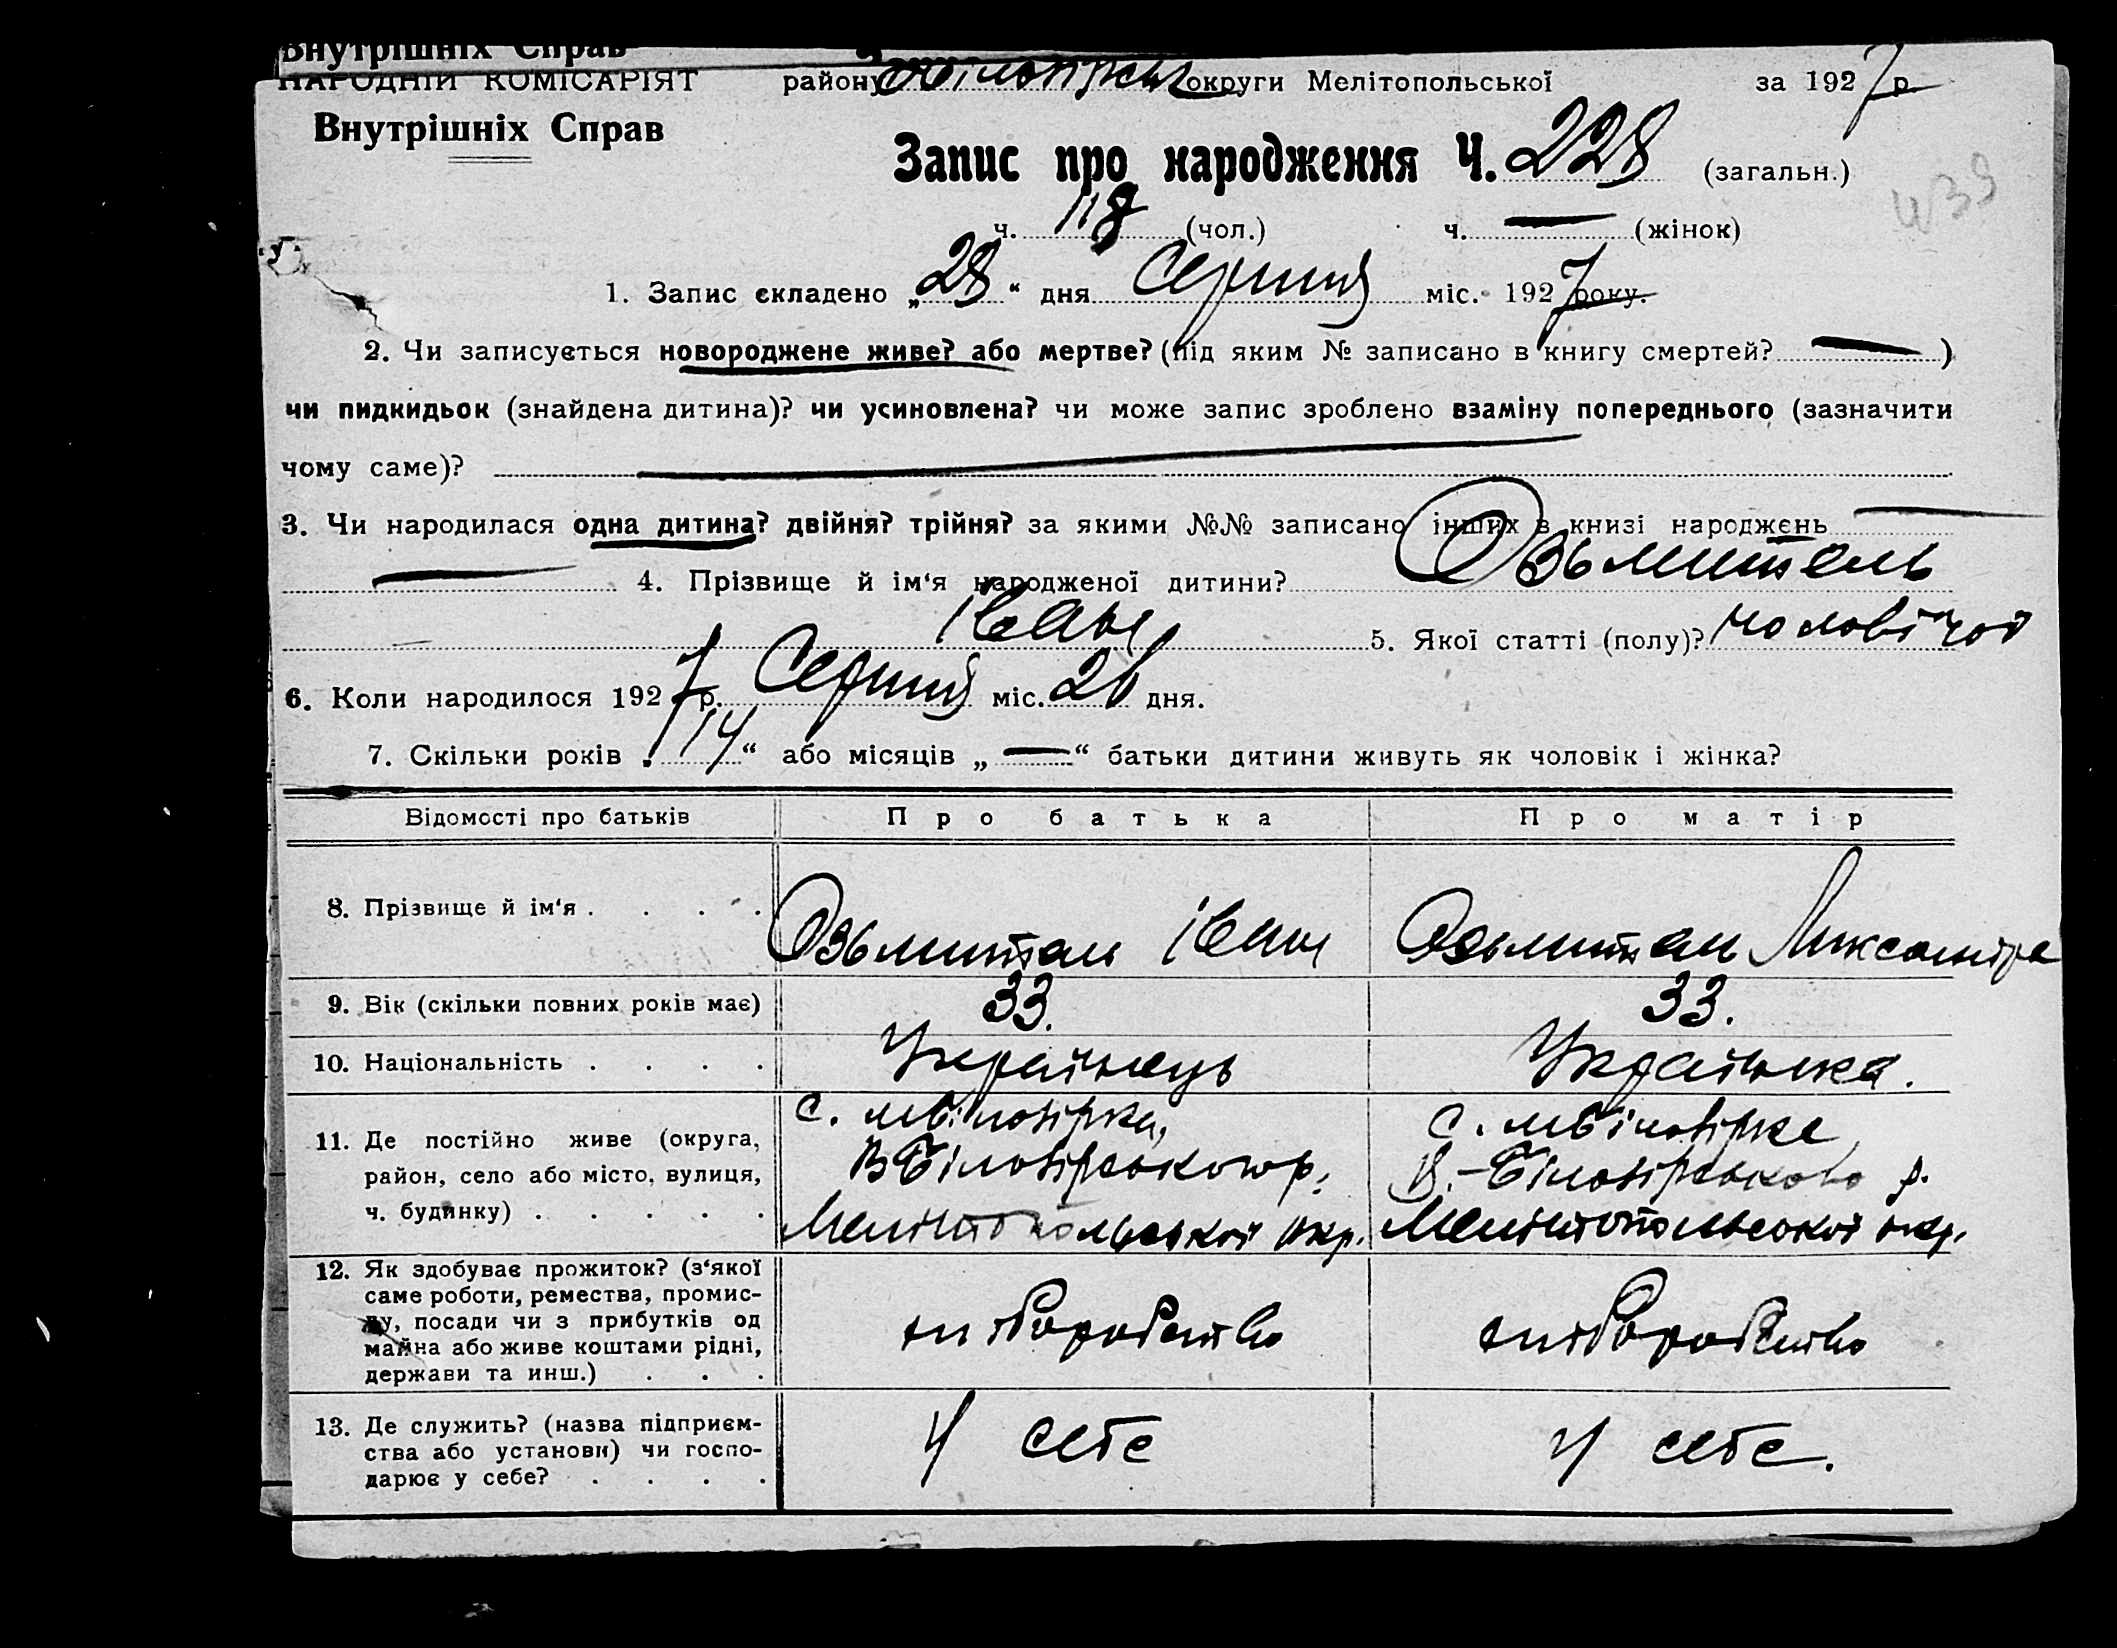 Внутрішніх Справ
НАРОДНІЙ КОМІСАРІЯТ району округи Мелітопольської за 1927 р.
Внутрішніх Справ
Запис про народження Ч. 228 (загальн.)
ч. 118 (чол.) ч. — (жінок)
1. Запис складено „28“ дня Серпня міс. 1927 року.
2. Чи записується новороджене живе? або мертве? (під яким № записано в книгу смертей? — )
чи пидкидьок (знайдена дитина)? чи усиновлена? чи може запис зроблено взаміну попереднього (зазначити
чому саме)? —
3. Чи народилася одна дитина? двійня? трійня? за якими №№ записано інших в книзі народжень —
— 4. Прізвище й ім‘я народженої дитини?
Іван 5. Якої статті (полу)? чоловічої
6. Коли народилося 1927 р. Серпня міс. 26 дня.
7. Скільки років „14“ або місяців „—“ батьки дитини живуть як чоловік і жінка?
Відомості про батьків Про батька Про матір
8. Прізвище й ім‘я . . . . Іван
9. Вік (скільки повних років має) 33. 33.
10. Національність . . . . Українець Українка.
11. Де постійно живе (округа,
район, село або місто, вулиця,
ч. будинку) . . . . .
с. мбіловірка,
В Біловірського р.
Мелітопольської окр.
с. мбіловірка,
В.-Біловірського р.
Мелітопольської окр.
12. Як здобуває прожиток? (з‘якої
саме роботи, ремества, промис-
лу, посади чи з прибутків од
майна або живе коштами рідні,
держави та инш.) . . .
хліборобство хліборобство
13. Де служить? (назва підприєм-
ства або установи) чи госпо-
дарює у себе? . . . .
У себе У себе.